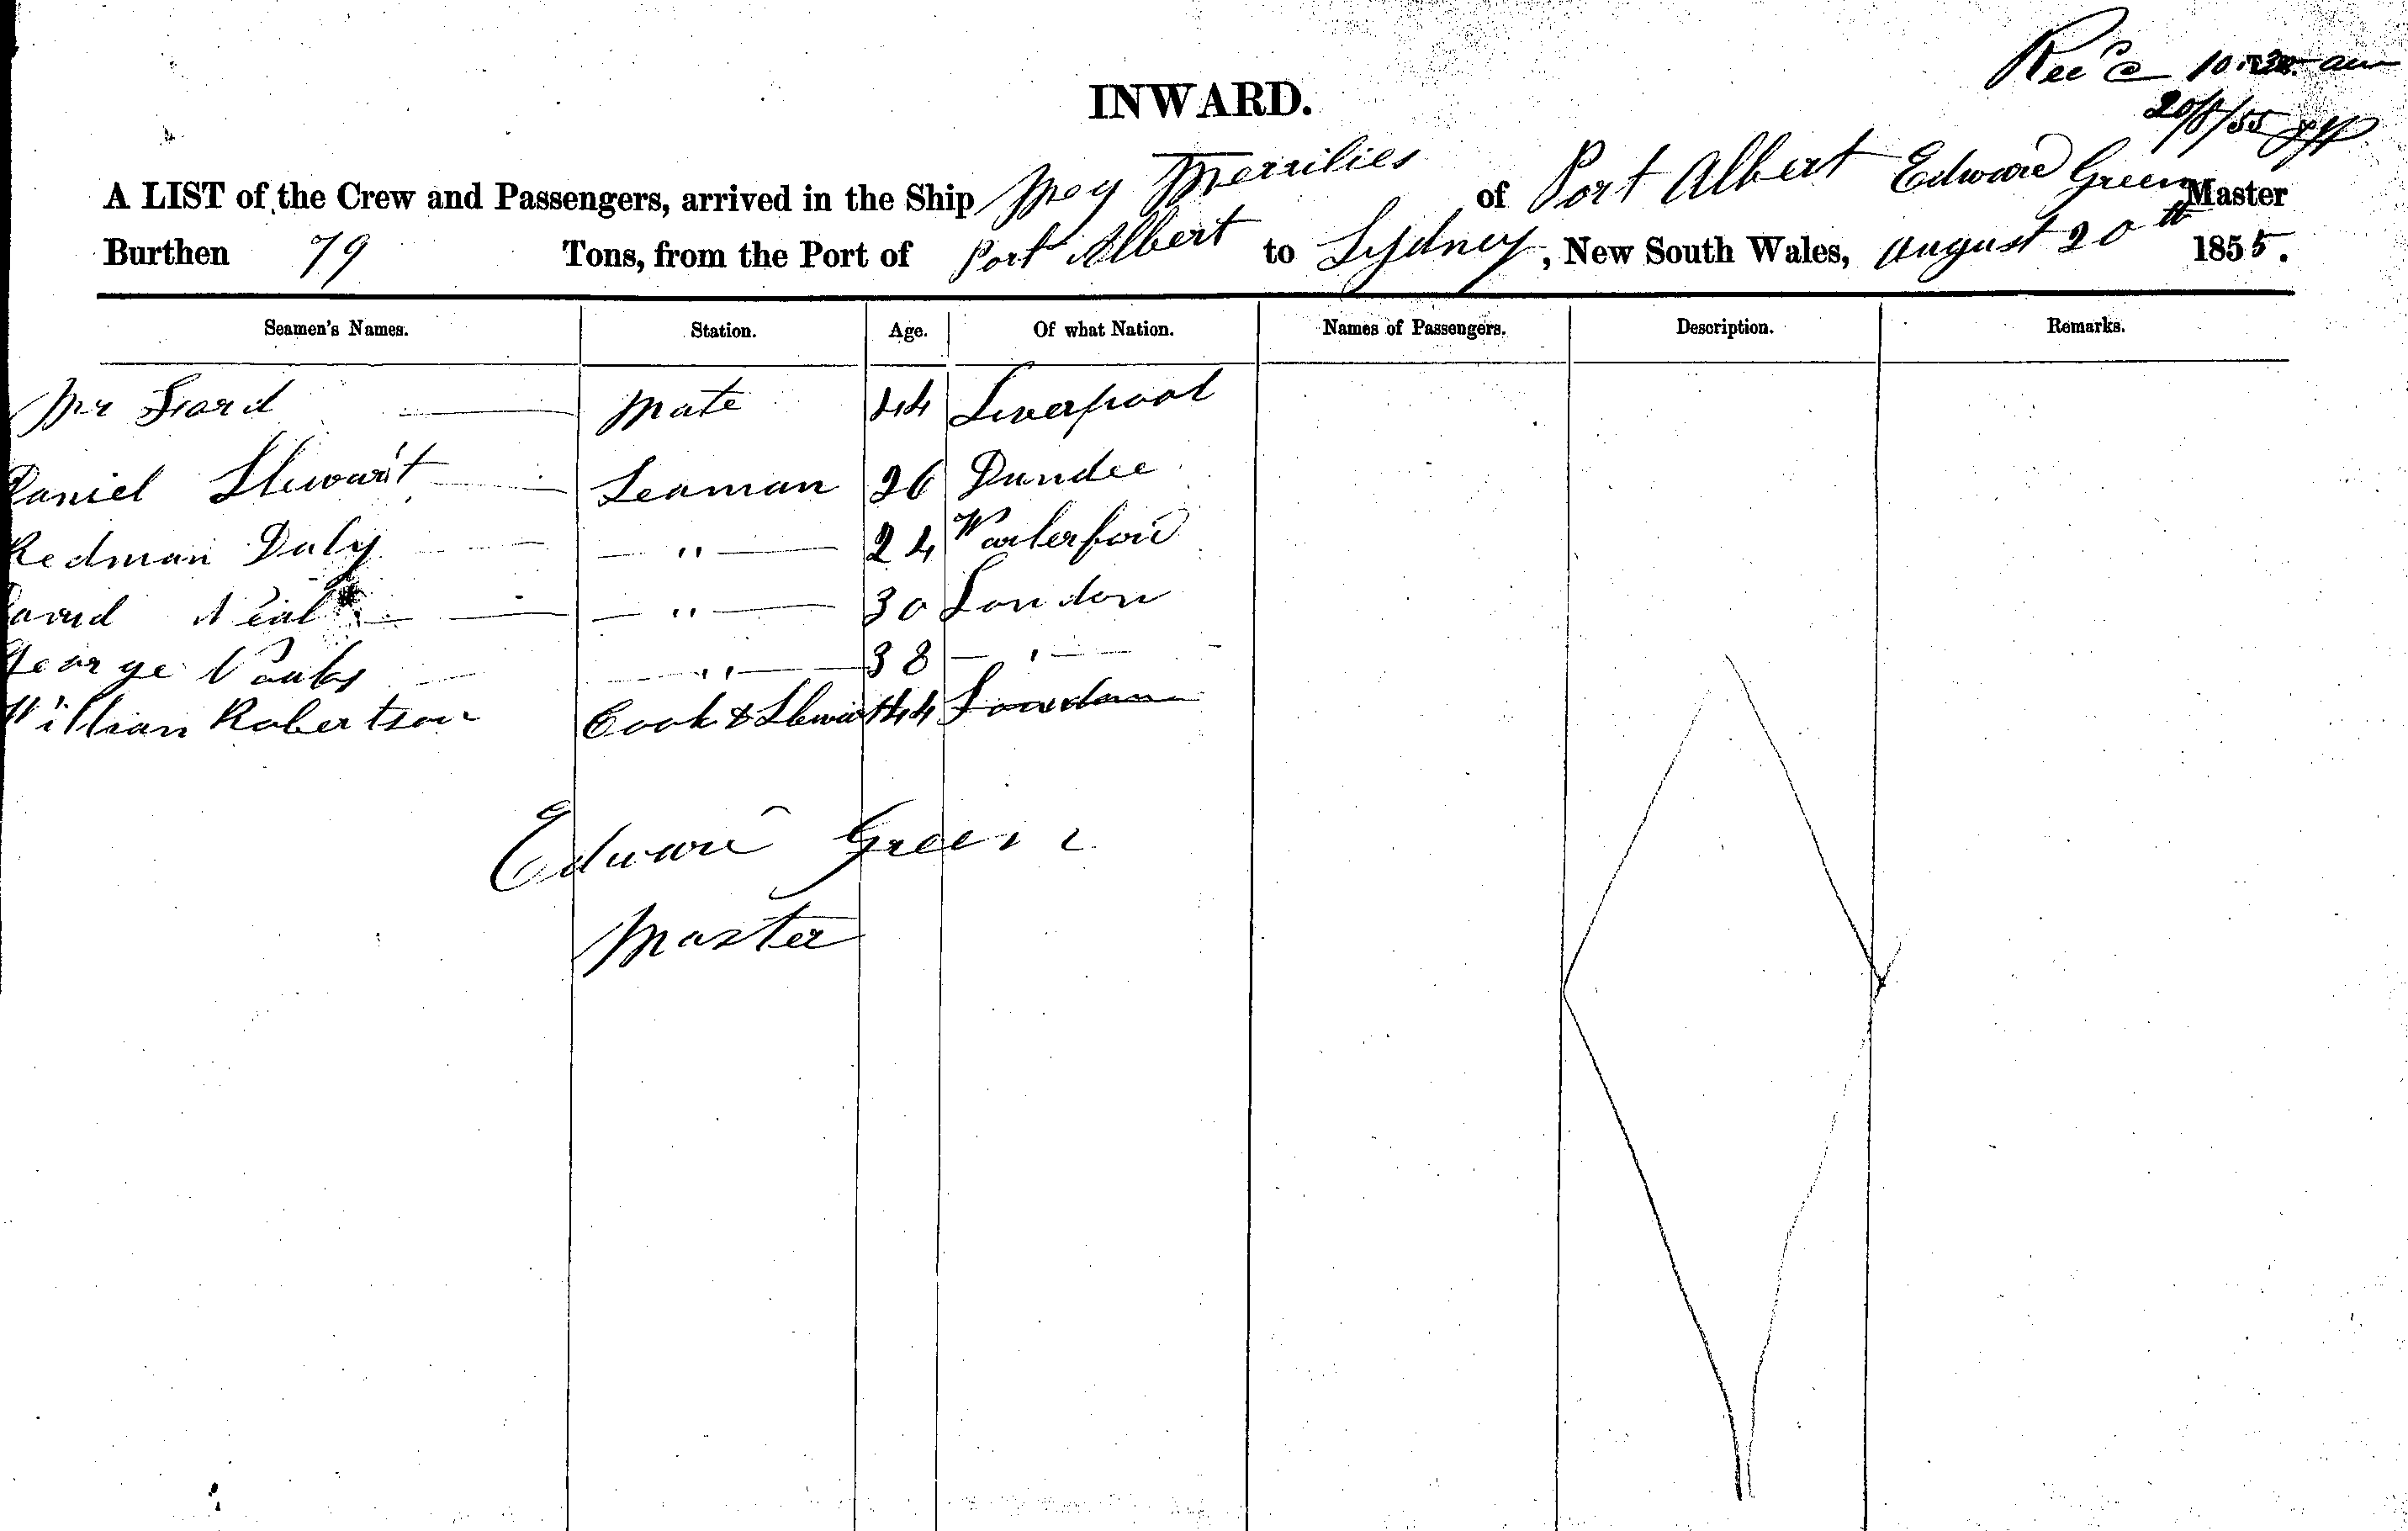 INWARD.
Rec'd 10.30 am
20/8/55
A LIST of the Crew and Passengers, arrived in the Ship Meg Merrilies of Port Albert Edward Green Master
Burthen 79 Tons, from the Port of Port Albert to Sydney, New South Wales, August 20th 1855.
Seamen's Names. Station. Age. Of what Nation. Names of Passengers. Description. Remarks.
Mr Mate 44 Liverpool
Daniel Stewart Seaman 26 Dundee
Redman Daly " 24 Warterford
David Neal " 30 London
George " 38 "
William Robertson Cook & Steward 44 London
Edward Green
Master